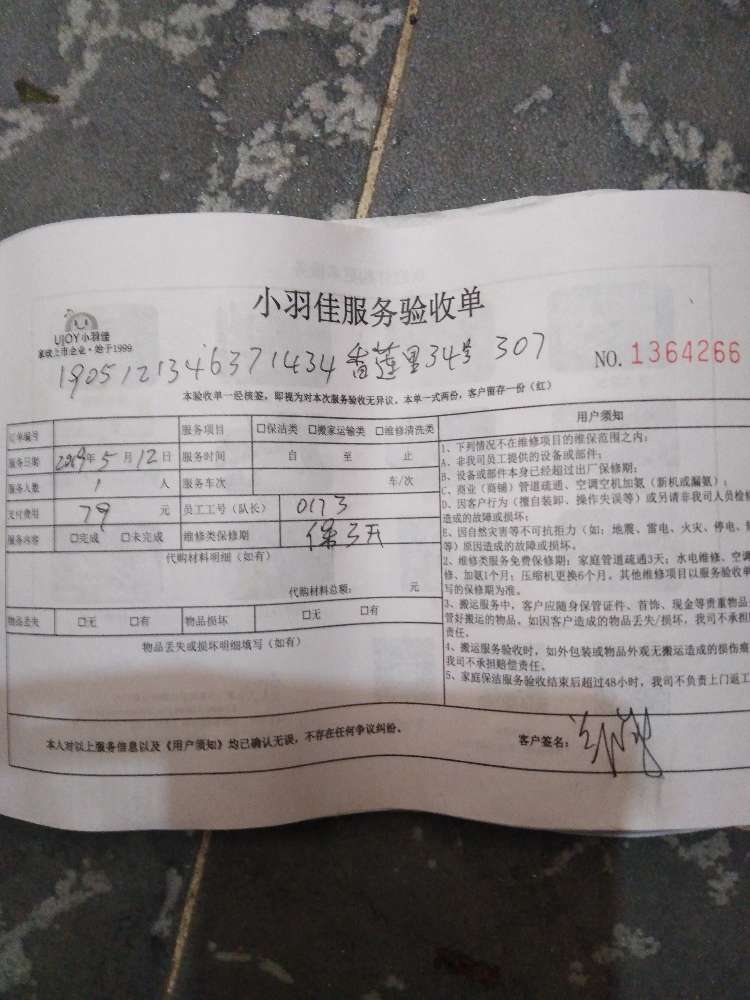 小羽佳服务验收单
UJOY小羽佳
家政上市企业·始于1999
1905121346371434 香莲里34号 307
NO. 1364266
本验收单一经核签，即视为对本次服务验收无异议。本单一式两份，客户留存一份（红）
订单编号 服务项目 □保洁类 □搬家运输类 □维修清洗类
服务日期 2019年 5 月 12 日 服务时间 自 至 止
服务人数 1 人 服务车次 车/次
支付费用 79 元 员工工号（队长） 0173
服务内容 □完成 □未完成 维修类保修期 保3天
代购材料明细（如有）
代购材料总额： 元
物品丢失 □无 □有 物品损坏 □无 □有
物品丢失或损坏明细填写（如有）
用户须知
1、下列情况不在维修项目的维保范围之内：
A、非我司员工提供的设备或部件；
B、设备或部件本身已经超过出厂保修期；
C、商业（商铺）管道疏通、空调空机加氨（新机或漏氨）；
D、因客户行为（擅自装卸、操作失误等）或另请非我司人员检修
造成的故障或损坏；
E、因自然灾害等不可抗拒力（如：地震、雷电、火灾、停电、
等）原因造成的故障或损坏。
2、维修类服务免费保修期：家庭管道疏通3天；水电维修、空调
修、加氨1个月；压缩机更换6个月。其他维修项目以服务验收单
写的保修期为准。
3、搬运服务中，客户应随身保管证件、首饰、现金等贵重物品
管好搬运的物品。如因客户造成的物品丢失/损坏，我司不承担
责任。
4、搬运服务验收时，如外包装或物品外观无搬运造成的损伤痕
我司不承担赔偿责任。
5、家庭保洁服务验收结束后超过48小时，我司不负责上门返工
本人对以上服务信息以及《用户须知》均已确认无误，不存在任何争议纠纷。
客户签名：